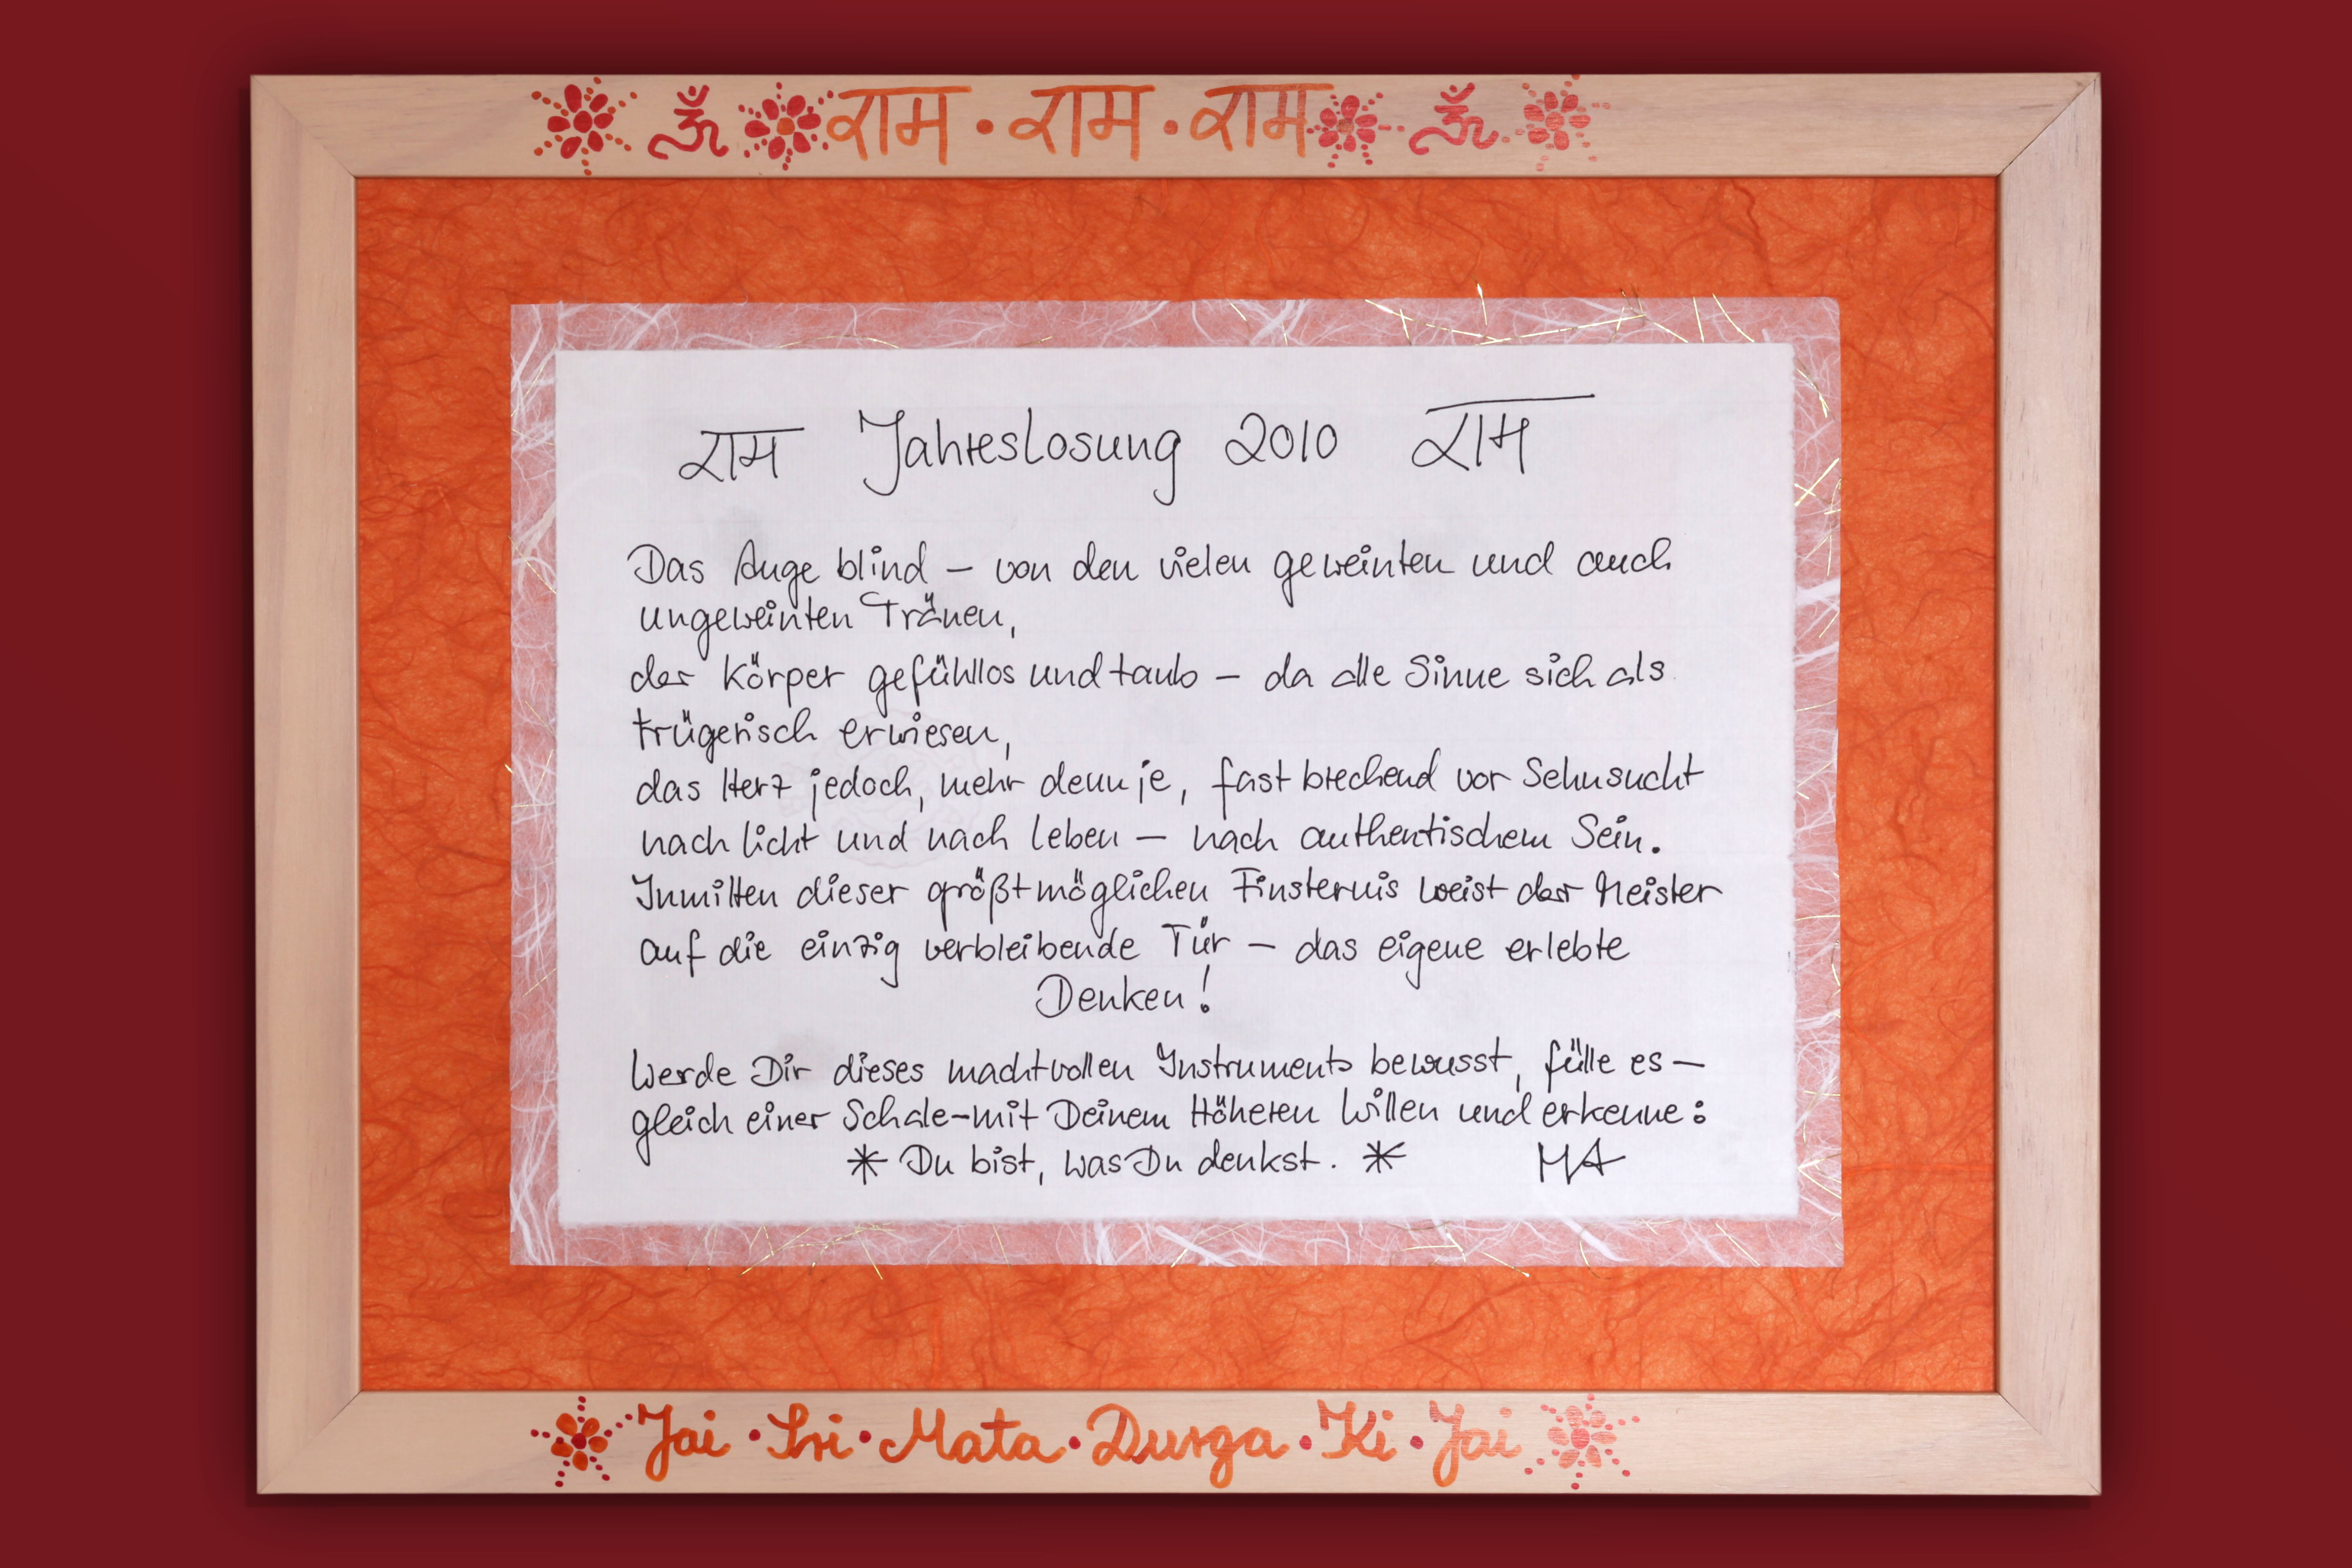 ॐ राम • राम • राम ॐ
राम Jahreslosung 2010 राम
Das Auge blind – von den vielen geweinten und auch
ungeweinten Tränen,
der Körper gefühllos und taub – da alle Sinne sich als
trügerisch erwiesen,
das Herz jedoch, mehr denn je, fast brechend vor Sehnsucht
nach Licht und nach Leben – nach authentischem Sein.
Inmitten dieser größtmöglichen Finsternis weist der Meister
auf die einzig verbleibende Tür – das eigene erlebte
Denken!
Werde Dir dieses machtvollen Instruments bewusst, fülle es –
gleich einer Schale – mit Deinem Höheren Willen und erkenne:
* Du bist, was Du denkst. * MA
Jai • Sri • Mata • Durga • Ki • Jai